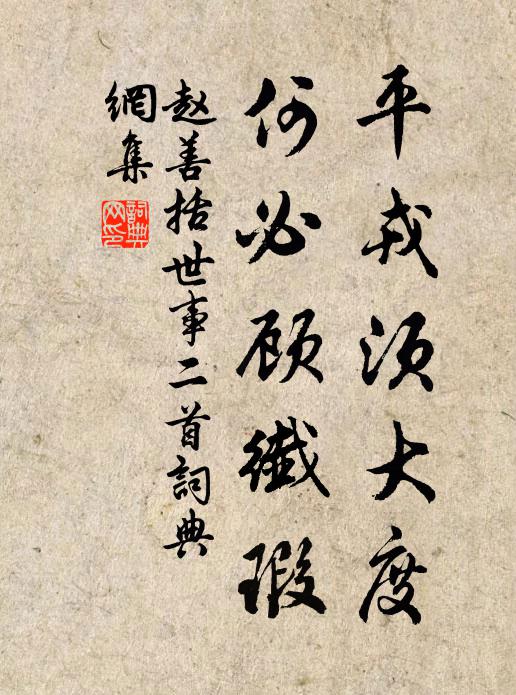 平戎须大度
何必顾纖瑕
赵善括世事二首詞典
網集
詞典网印